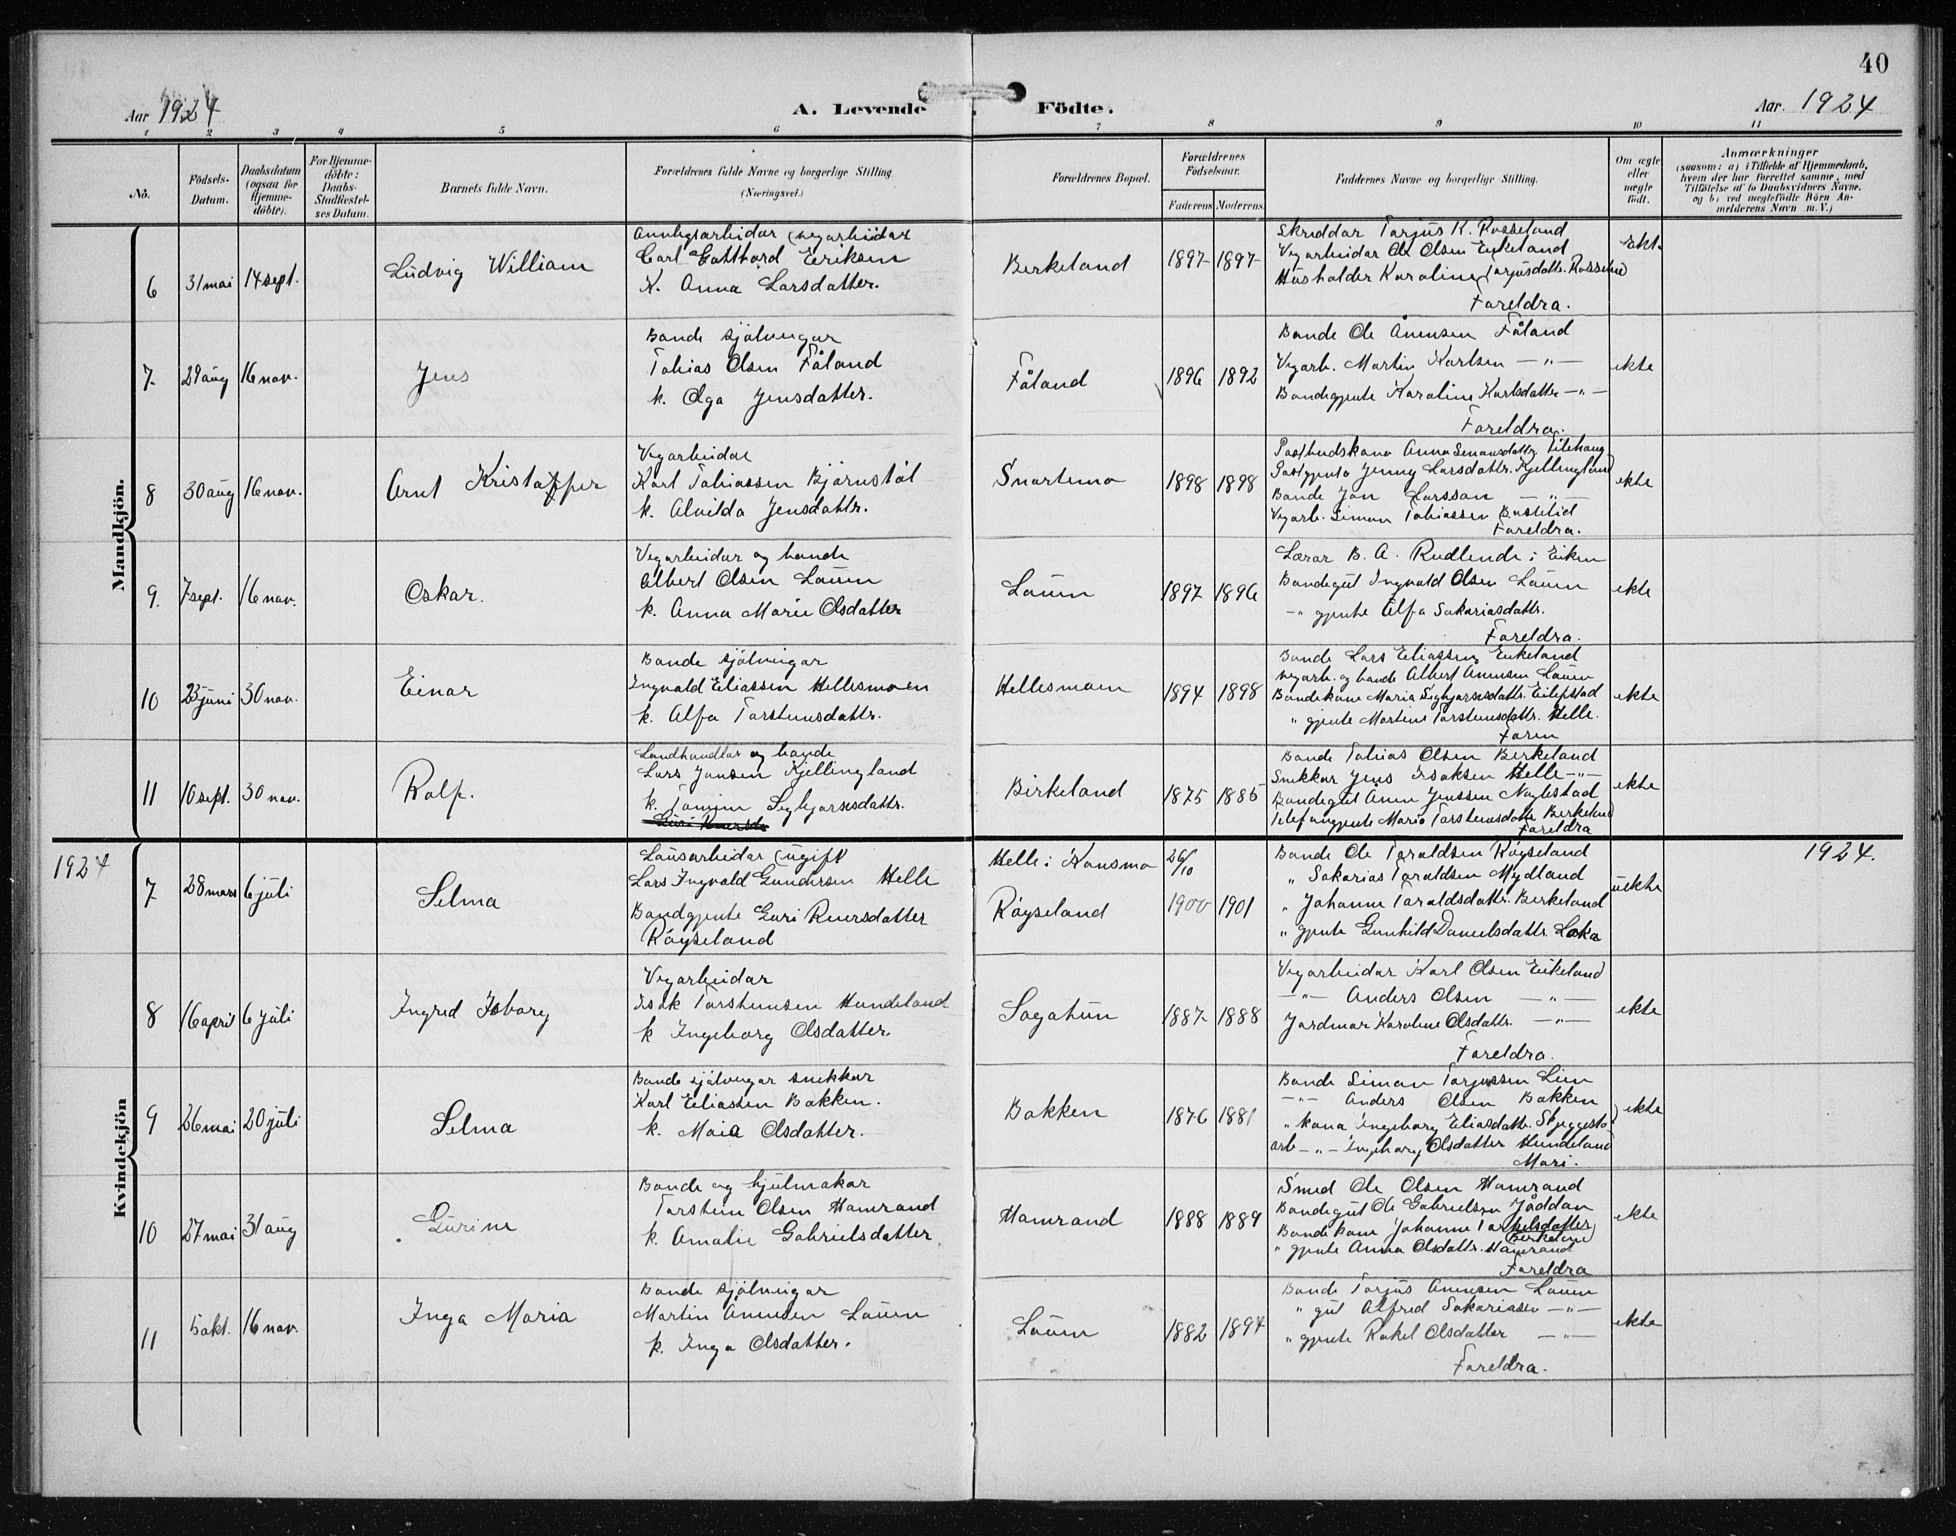 40
Aar 1924
A. Levende Födte.
Aar. 1924
1 2 3 4 5 6 7 8 9 10 11
No.
Födsels-Datum.
Daabsdatum (ogsaa for Hjemme-döbte).
For Hjemme-döbte: Daabs-Stadfestel-ses Datum.
Barnets fulde Navn.
Forældrenes fulde Navne og borgerlige Stilling.
(Næringsvei.)
Forældrenes Bopæl.
Forældrenes Födselsaar.
Faderens Moderens
Faddernes Navne og borgerlige Stilling.
Om ægte eller uægte födt.
Anmærkninger
(saasom: a) i Tilfælde af Hjemmedaab,
hvem der har forrettet samme, med
Tilföielse af to Daabsvidners Navne,
og b) ved uægtefödte Börn An-
melderens Navn m. V.)
Mandkjön.
6 31 mai 14 sept. Ludvig William
Anlegsarbeidar (vegarbeidar
Carl Gotthard Eriksen
K. Anna Larsdatter.
Birkeland 1897 1897
Skreddar Tarjus K. Rosseland
Vegarbeidar Ole Olsen Eikeland
Husholder Karoline Tarjusdattr. Rosseland
Foreldra.
Ekt.
7. 29 aug 16 nov. Jens
Bonde sjölveigar
Tobias Olsen Fåland
k. Olga Jensdatter.
Fåland 1896 1892
Bonde Ole Ånensen Fåland
Vegarb. Martin Karlsen —"—
Bondegjente Karoline Karlsdatter —"—
Foreldra.
ekte
8 30 aug 16 nov. Arnt Kristoffer
Vegarbeidar
Karl Tobiassen Björnstöl
k. Alvilda Jensdattr.
Snartemo 1898 1898
Postbudskona Anna Simonsdattr.
Postgjenta Jenny Larsdattr. Kjellingland
Bonde Jon Larsson —"—
Vegarb. Simon Tobiassen
Foreldra.
ekte
9. 7 sept. 16 nov. Oskar.
Vegarbeidar og bonde
Albert Olsen Lauen
k. Anna Marie Olsdatter
Lauen 1897 1896
Lærar B. A. Rudlende i Eiken
Bondegut Ingvald Olsen Lauen
—"gjente Alfa Sakariasdattr.
Foreldra.
ekte
10 23 juni 30 nov. Einar
Bonde sjölveigar
Ingvald Eliassen Hellesmoen
k. Alfa Torsteinsdattr.
Hellesmoen 1894 1898
Bonde Lars Eliassen Eikeland
vegarb. og bonde Albert Anensen Lauen
Bondekone Maria Sigbjørnsdattr. Eilefstad
" gjente Martine Torsteinsdattr. Helle.
Faren
ekte
11 10 sept. 30 nov. Rolf.
Landhandlar og bonde
Lars Jonsen Kjellingland
k. Tomine Sigbjørnsdattr.
Birkeland 1875 1885
Bonde Tobias Olsen Birkeland
Snekkar Jens Isaksen Helle —"—
Bondegut Ånen Jenssen Naglestad
Telefongjente Maria Torsteinsdattr Birkeland
Foreldra
ekte
1924
1924.
Kvindekjön
7 28 mars 6 juli Selma
Lausarbeidar (ugift
Lars Ingvald Gundersen Helle
Bondgjente Guri Reiersdatter
Röyseland
Helle i Konsmo
Röyseland
26/10
1900 1901
Bonde Ole Taraldsen Röyseland
" Sakarias Taraldsen Mydland
" Johanne Taraldsdattr. Birkeland
" gjente Gunhild Danielsdattr.
uekte
8 16 april 6 juli Ingrid Isborg
Vegarbeidar
Isak Torsteinsen Hundeland
k Ingeborg Olsdatter.
Sogatun 1887 1888
Vegarbeidar Karl Olsen Eikeland
—"— Anders Olsen —"—
Jordmor Karoline Olsdattr. —"—
Foreldra.
ekte
9 26 mai 20 juli Selma
Bonde sjölveigar snekkar
Karl Eliassen Bakken.
k. Maia Olsdatter.
Bakken 1876 1881
Bonde Simon Torjussen Lien
—"— Anders Olsen Bakken
" kona Ingeborg Eliasdattr.
arb —"— Ingeborg Olsdatter Hundeland
Mori.
ekte
10 27 mai 31 aug Gurine
Bonde og hjulmakar
Torstein Olsen Homrand
k. Amalie Gabrielsdatter
Homrand 1888 1889
Smed Ole Olsen Homrand
Bondegut Ole Gabrielsen
Bondekone Johanne
Birkeland
" gjente Anna Olsdattr. Homrand
Foreldra
ekte
11 5 okt. 16 nov. Inga Maria
Bonde sjölveigar
Martin Anensen Lauen
k. Inga Olsdatter.
Lauen 1882 1894
Bonde Torjus Anensen Lauen
" gut Alfred Sakariassen —"—
" gjente Rakel Olsdatter —"—
Foreldra.
ekte